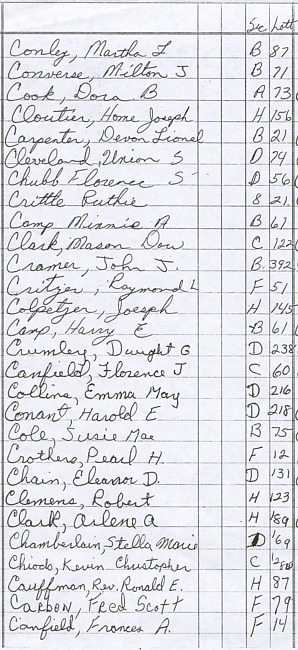 Sec Lott
Conley, Martha L B 87
Converse, Milton J B 71
Cook, Dora B A 73
Cloutier, Home Joseph H 156
Carpenter, Devon Lionel B 21
Cleveland, Union S D 74
Chubb Florence S D 56
Crittle Ruthie 8 21
Camp Minnie A B 61
Clark, Mason Dow C 122
Cramer, John J. B. 392
Critzer, Raymond L F 51
Colpetzer, Joesph H 145
Camp, Harry E B 61
Crumley, Dwight G D 238
Canfield, Florence J C 60
Collins, Emma May D 216
Conant, Harold E D 218
Cole, Susie Mae B 75
Crothers, Pearl H. F 12
Chain, Eleanor D. D 131
Clemens, Robert H 123
Clark, Arlene A H 189
Chamberlain, Stella Marie D 169
Chiods, Kevin Christopher C
Cauffman, Rev. Ronald E. H 87
Carbon, Fred Scott F 79
Canfield, Frances A. F 14